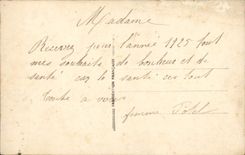 Madame
Recevez pour l'année 1925 tout
mes souhaits de bonheur et de
santé car la santé ces tout
Toute a vous
femme
FABRICATION FRANÇAISE